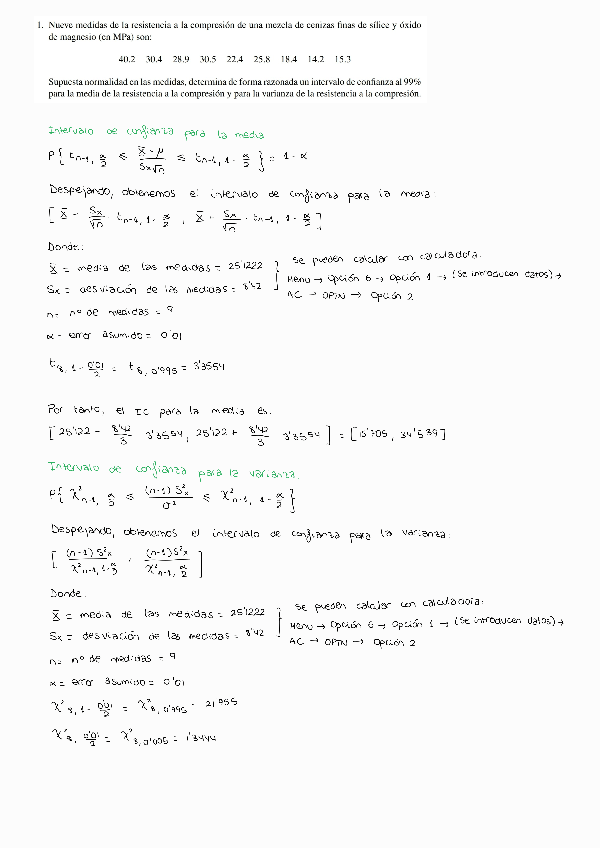 1. Nueve medidas de la resistencia a la compresión de una mezcla de cenizas finas de sílice y óxido
de magnesio (en MPa) son:
40.2 30.4 28.9 30.5 22.4 25.8 18.4 14.2 15.3
Supuesta normalidad en las medidas, determina de forma razonada un intervalo de confianza al 99%
para la media de la resistencia a la compresión y para la varianza de la resistencia a la compresión.
Intervalo de confianza para la media
P{ t_{n-1, α/2} ≤ (x̄ - μ)/(Sx√n) ≤ t_{n-1, 1-α/2} } = 1-α
Despejando, obtenemos el intervalo de confianza para la media:
[ x̄ - Sx/√n t_{n-1, 1-α/2} , x̄ - Sx/√n · t_{n-1, 1-α/2} ]
Donde:
x̄ = media de las medidas = 25'1222
Sx = desviación de las medidas = 8'42
Se pueden calcular con calculadora:
Menu → Opción 6 → Opción 1 → (Se introducen datos) →
AC → OPTN → Opción 2
n = nº de medidas = 9
α = error asumido = 0'01
t_{8, 1-0'01/2} = t_{8, 0'995} = 3'3554
Por tanto, el IC para la media es:
[ 25'122 - 8'42/3 3'3554, 25'122 + 8'42/3 3'3554 ] = [15'705, 34'539]
Intervalo de confianza para la varianza.
P{ χ²_{n-1, α/2} ≤ (n-1)S²x/σ² ≤ χ²_{n-1, 1-α/2} }
Despejando, obtenemos el intervalo de confianza para la varianza:
[ (n-1)S²x/χ²_{n-1, 1-α/2} , (n-1)S²x/χ²_{n-1, α/2} ]
Donde:
x̄ = media de las medidas = 25'1222
Sx = desviación de las medidas = 8'42
Se pueden calcular con calculadora:
Menu → Opción 6 → Opción 1 → (Se introducen datos) →
AC → OPTN → Opción 2
n = nº de medidas = 9
α = error asumido = 0'01
χ²_{8, 1-0'01/2} = χ²_{8, 0'995} = 21'955
χ²_{8, 0'01/2} = χ²_{8, 0'005} = 1'3444